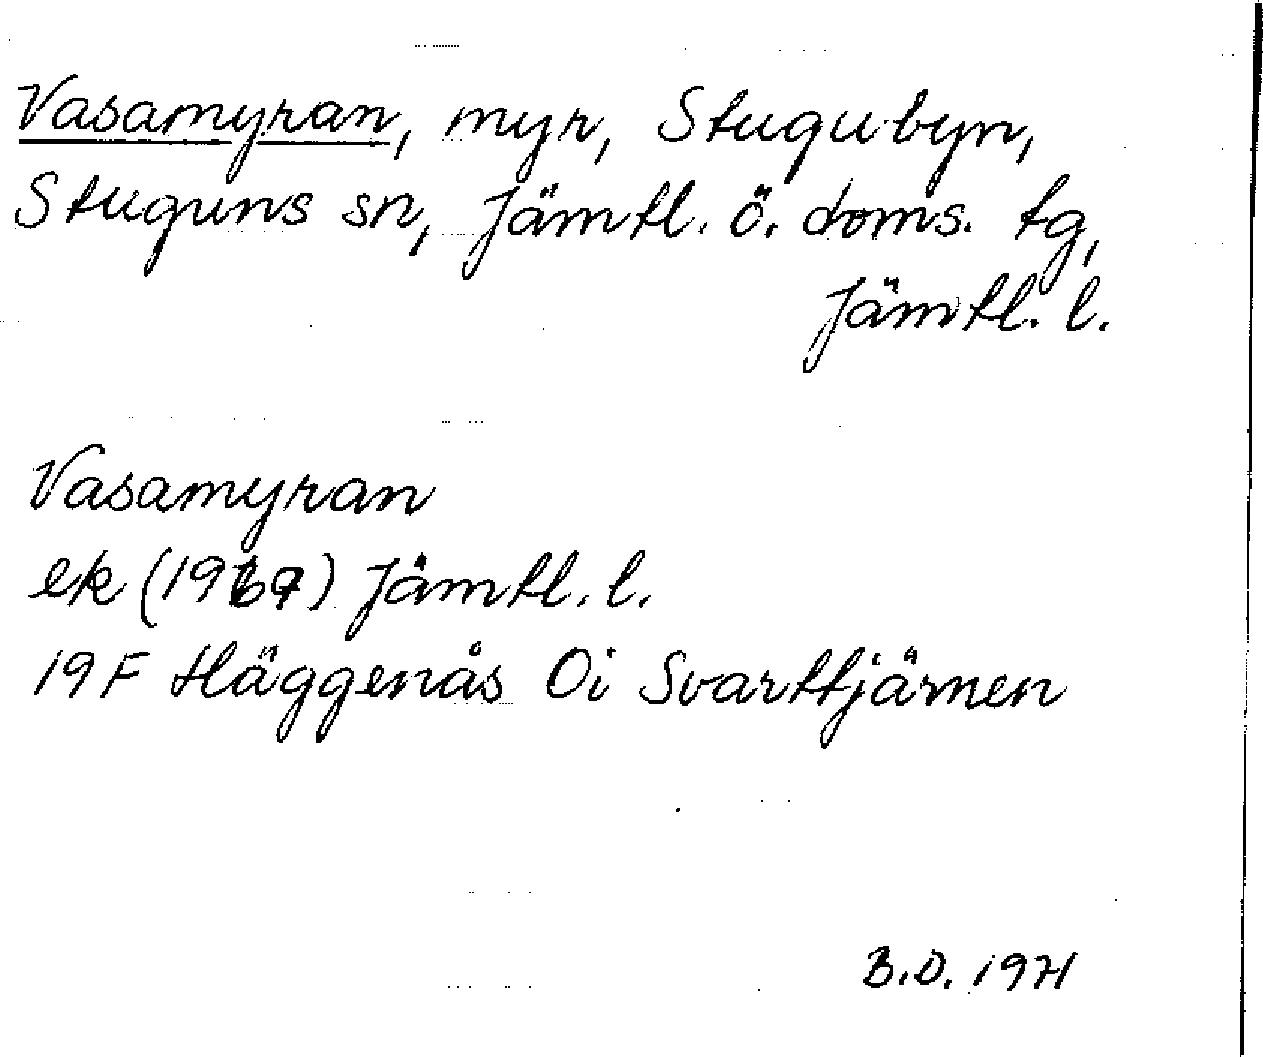 Vasamyran, myr, Stugubyn,
Stuguns sn, Jämtl. ö. doms. tg,
Jämtl. l.
Vasamyran
ek (1967) Jämtl. l.
19F Häggenås Oi Svarttjärnen
B.O. 1971